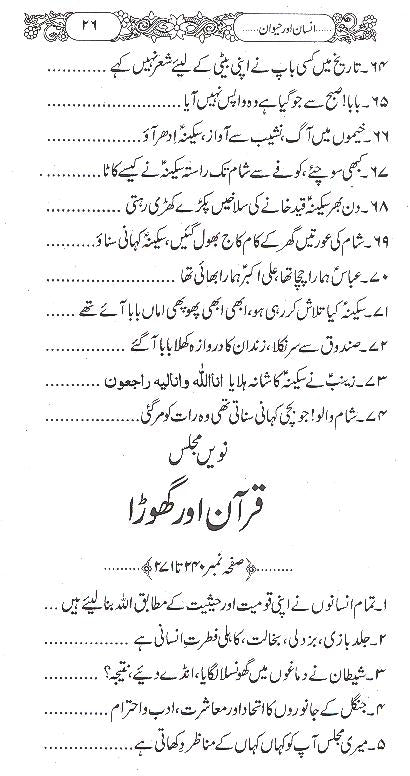 ......انسان اور حیوان...... ۲۶
۶۴۔ تاریخ میں کسی باپ نے اپنی بیٹی کے لیئے شعر نہیں کہے ............
۶۵۔ بابا! صبح سے جو گیا ہے وہ واپس نہیں آیا ............
۶۶۔ خیموں میں آگ، نشیب سے آواز، سکینہؑ اِدھر آؤ ............
۶۷۔ کبھی سوچئے، کوفے سے شام تک راستہ سکینہؑ نے کیسے کاٹا ............
۶۸۔ دن بھر سکینہؑ قید خانے کی سلاخیں پکڑے کھڑی رہتی ............
۶۹۔ شام کی عورتیں گھر کے کام کاج بھول گئیں، سکینہؑ کہانی سناؤ ............
۷۰۔ عباسؑ ہمارا چچا تھا، علی اکبرؑ ہمارا بھائی تھا ............
۷۱۔ سکینہؑ کیا تلاش کر رہی ہو، ابھی ابھی پھوپھی اماں بابا آئے تھے ......
۷۲۔ صندوق سے سر نکلا، زندان کا دروازہ کھلا بابا آگئے ............
۷۳۔ زینبؑ نے سکینہؑ کا شانہ ہلایا اناللہ وانالیہ راجعون ............
۷۴۔ شام والو! جو بچی کہانی سناتی تھی وہ رات کو مر گئی ............
نویں مجلس
قرآن اور گھوڑا
.........﴿صفحہ نمبر ۲۴۰ تا ۲۷۱﴾.........
۱۔ تمام انسانوں نے اپنی قومیت اور حیثیت کے مطابق اللہ بنا لیئے ہیں ...
۲۔ جلد بازی، بزدلی، بخالت، کاہلی فطرتِ انسانی ہے ............
۳۔ شیطان نے دماغوں میں گھونسلا لگایا، انڈے دیئے، نتیجہ؟ ............
۴۔ جنگل کے جانوروں کا اتحاد اور معاشرت، ادب و احترام ............
۵۔ میری مجلس آپ کو کہاں کہاں کے مناظر دکھاتی ہے ............